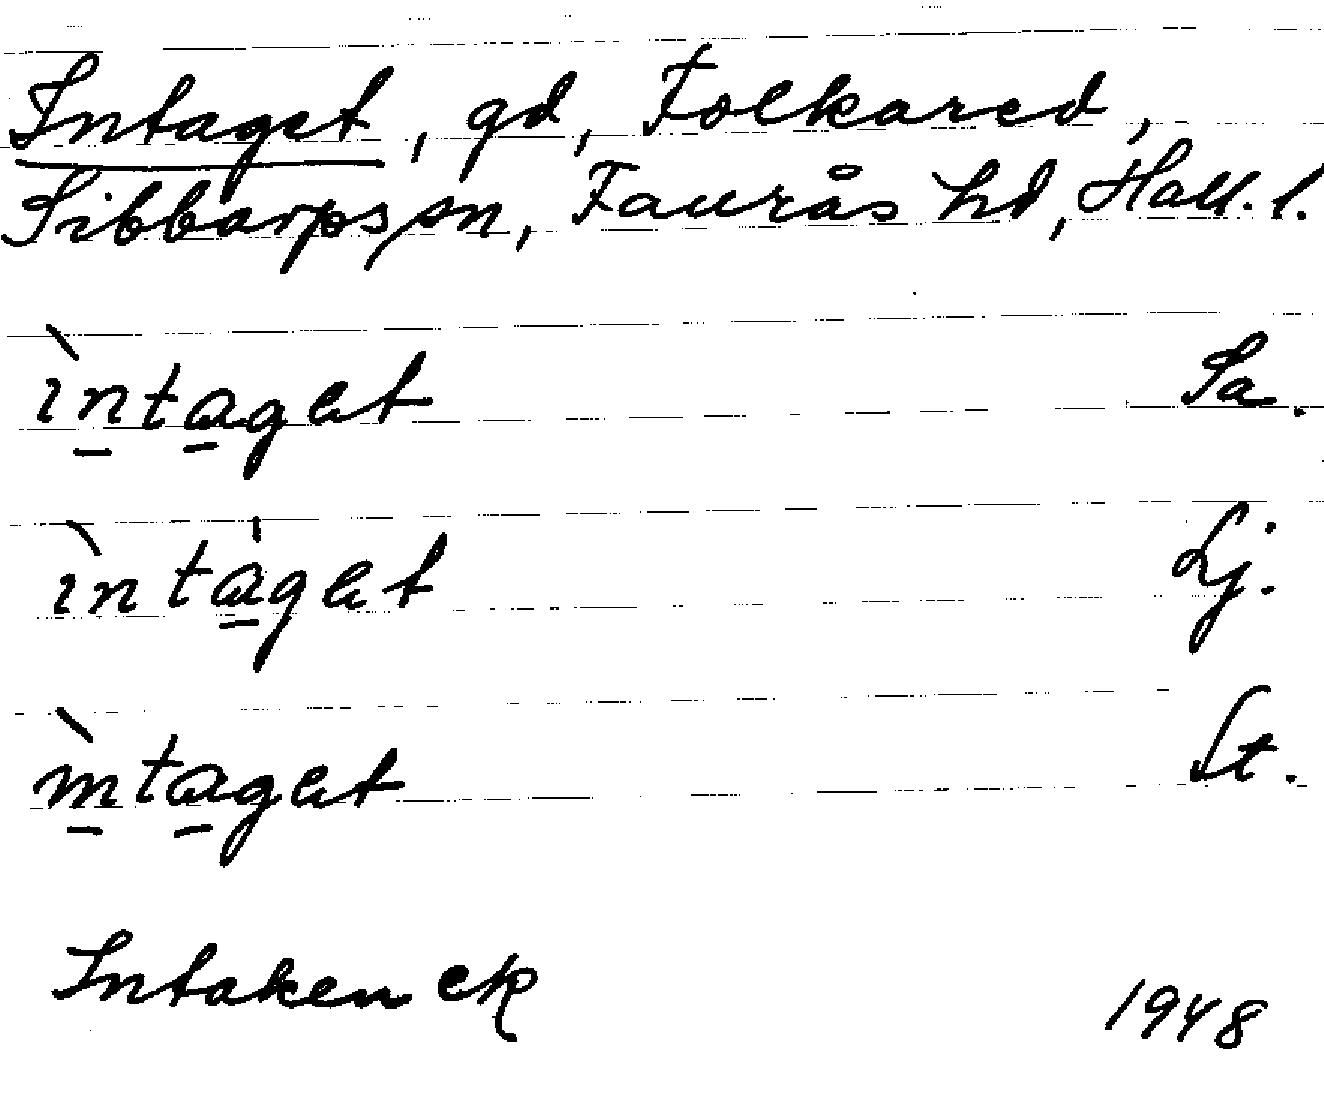 Intaget, gd, Folkared,
Sibbarps sn, Faurås hd, Hall. l.
ìntaget Sa.
ìntáget Lj.
ìntaget St.
Intaken ek 1948